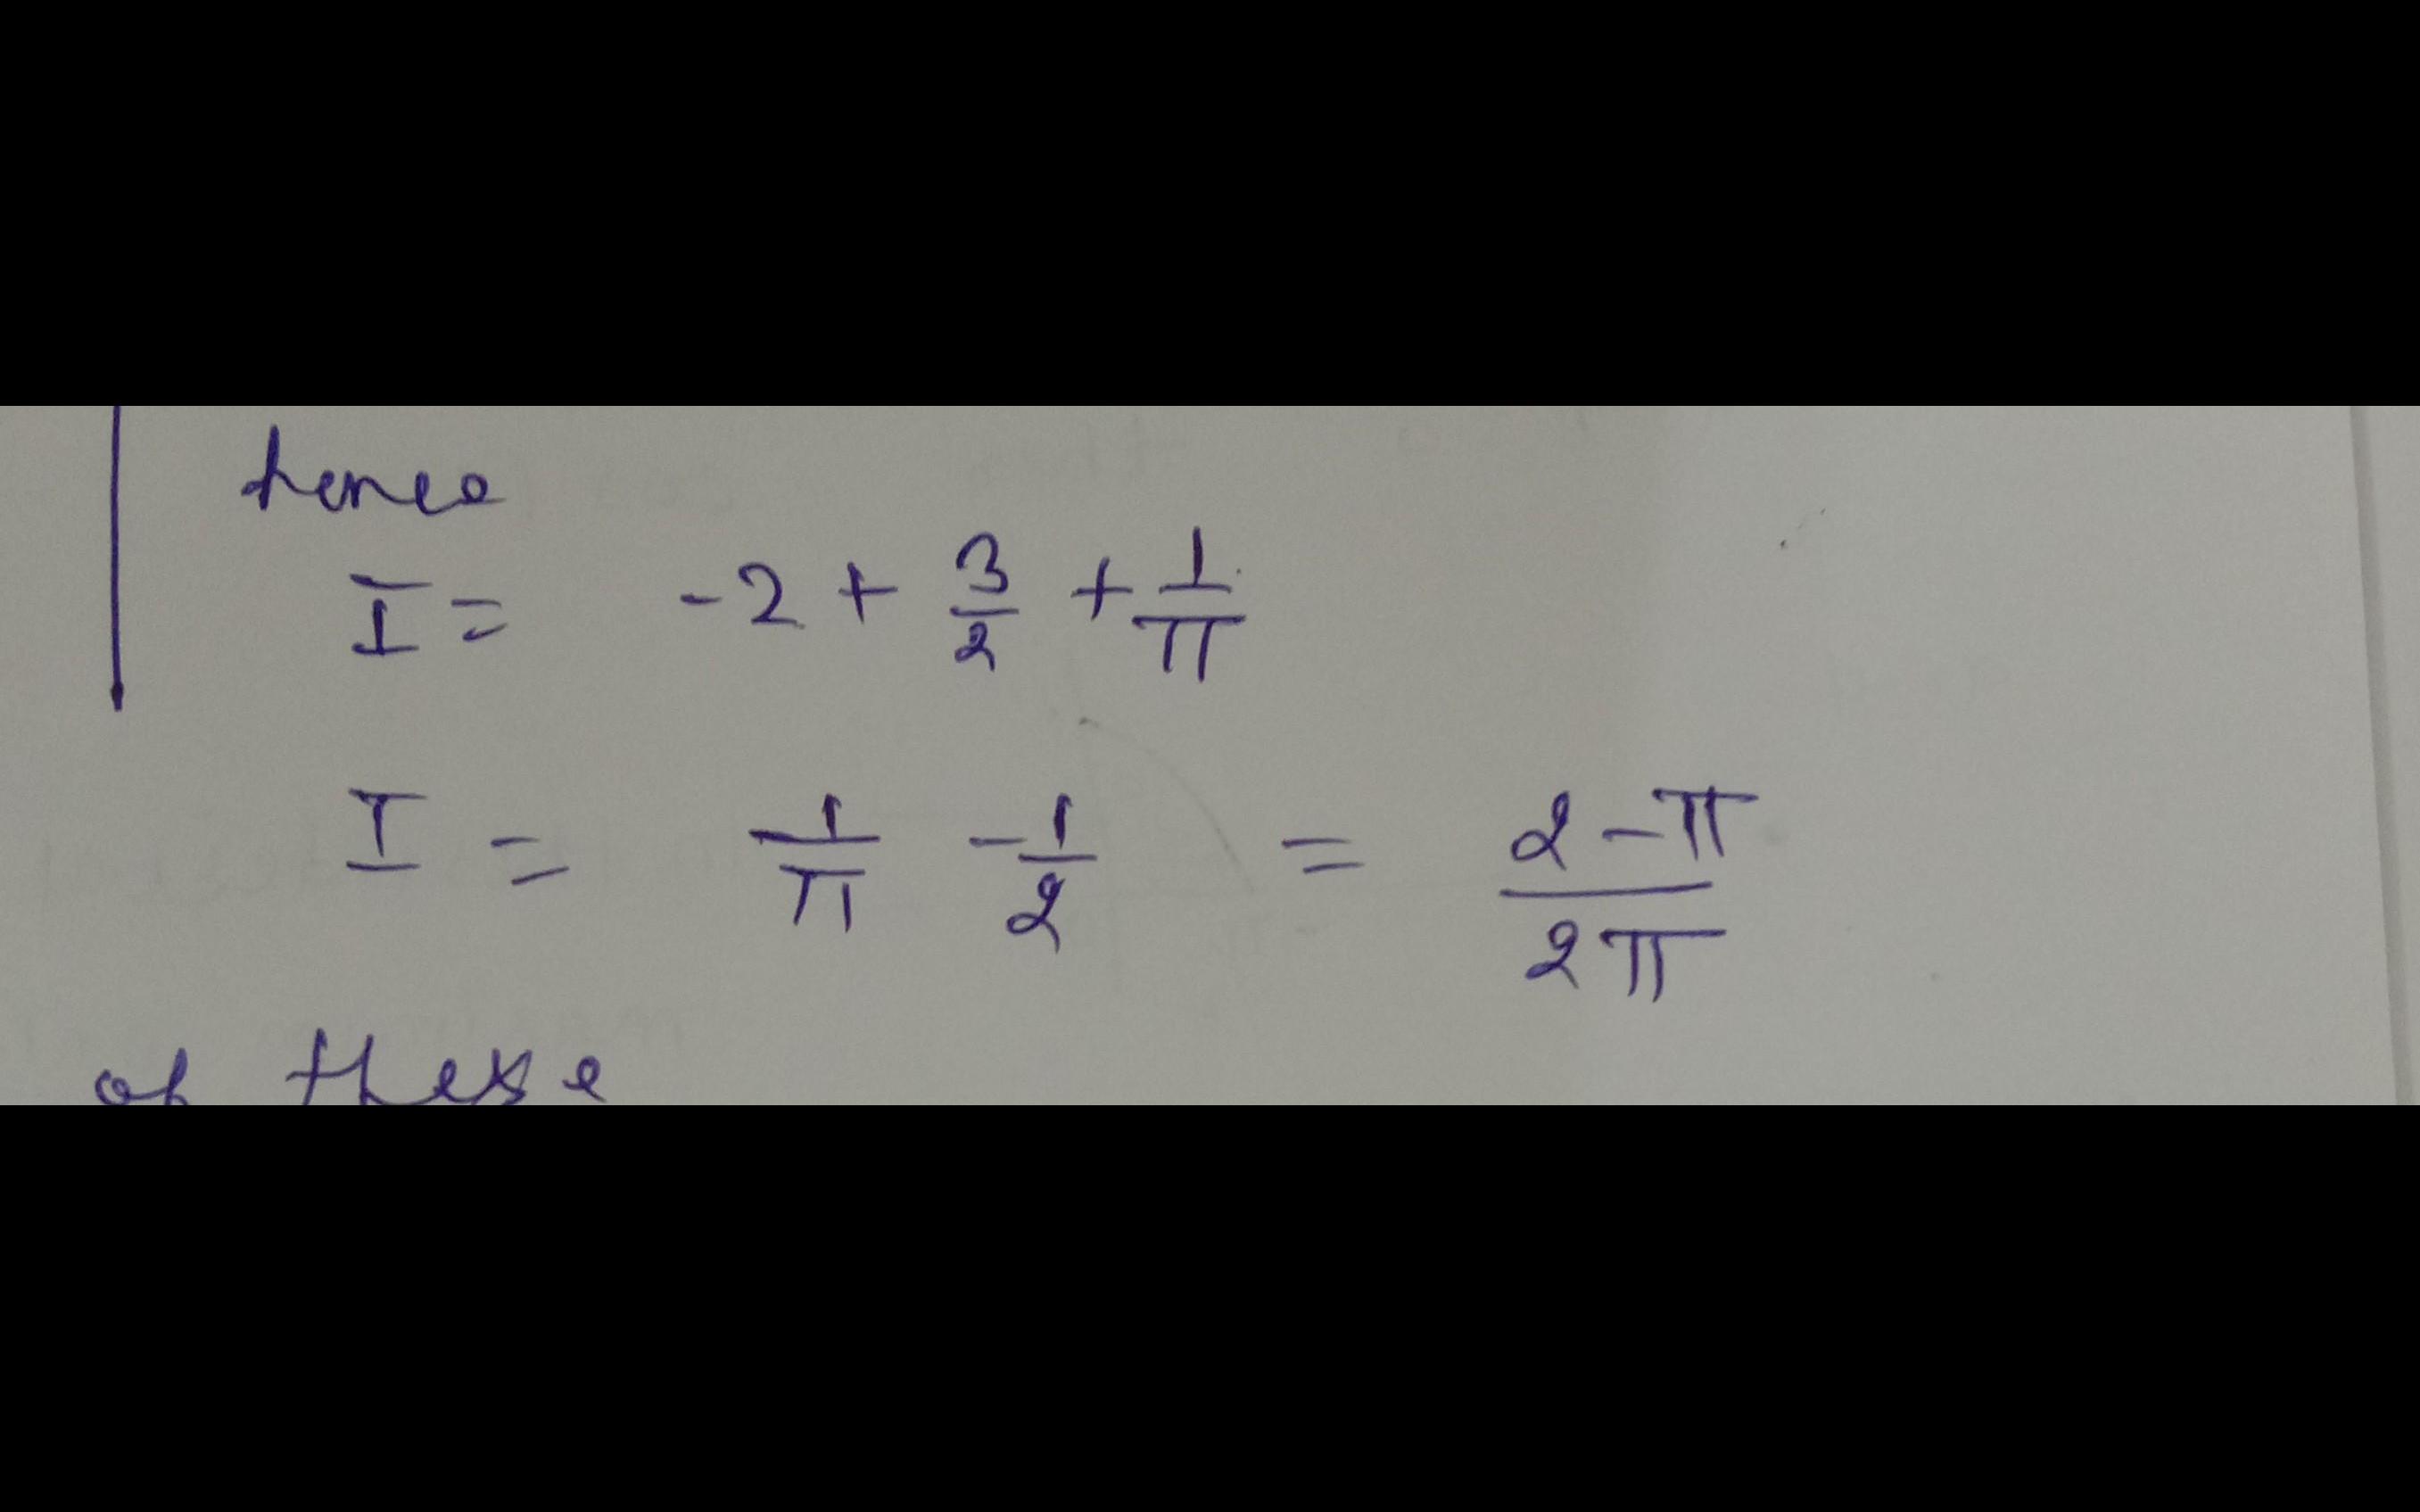 hence
I = -2 + 3/2 + 1/π
I = 1/π - 1/2 = (2-π)/(2π)
of these